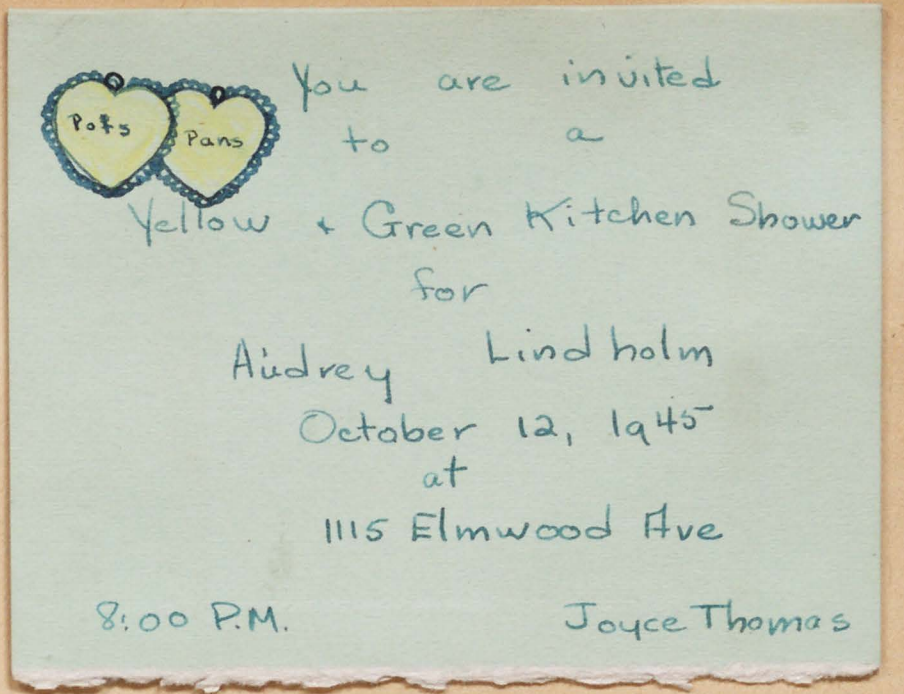 Pots
Pans
You are invited
to a
Yellow + Green Kitchen Shower
for
Audrey Lindholm
October 12, 1945
at
1115 Elmwood Ave
8:00 P.M. Joyce Thomas